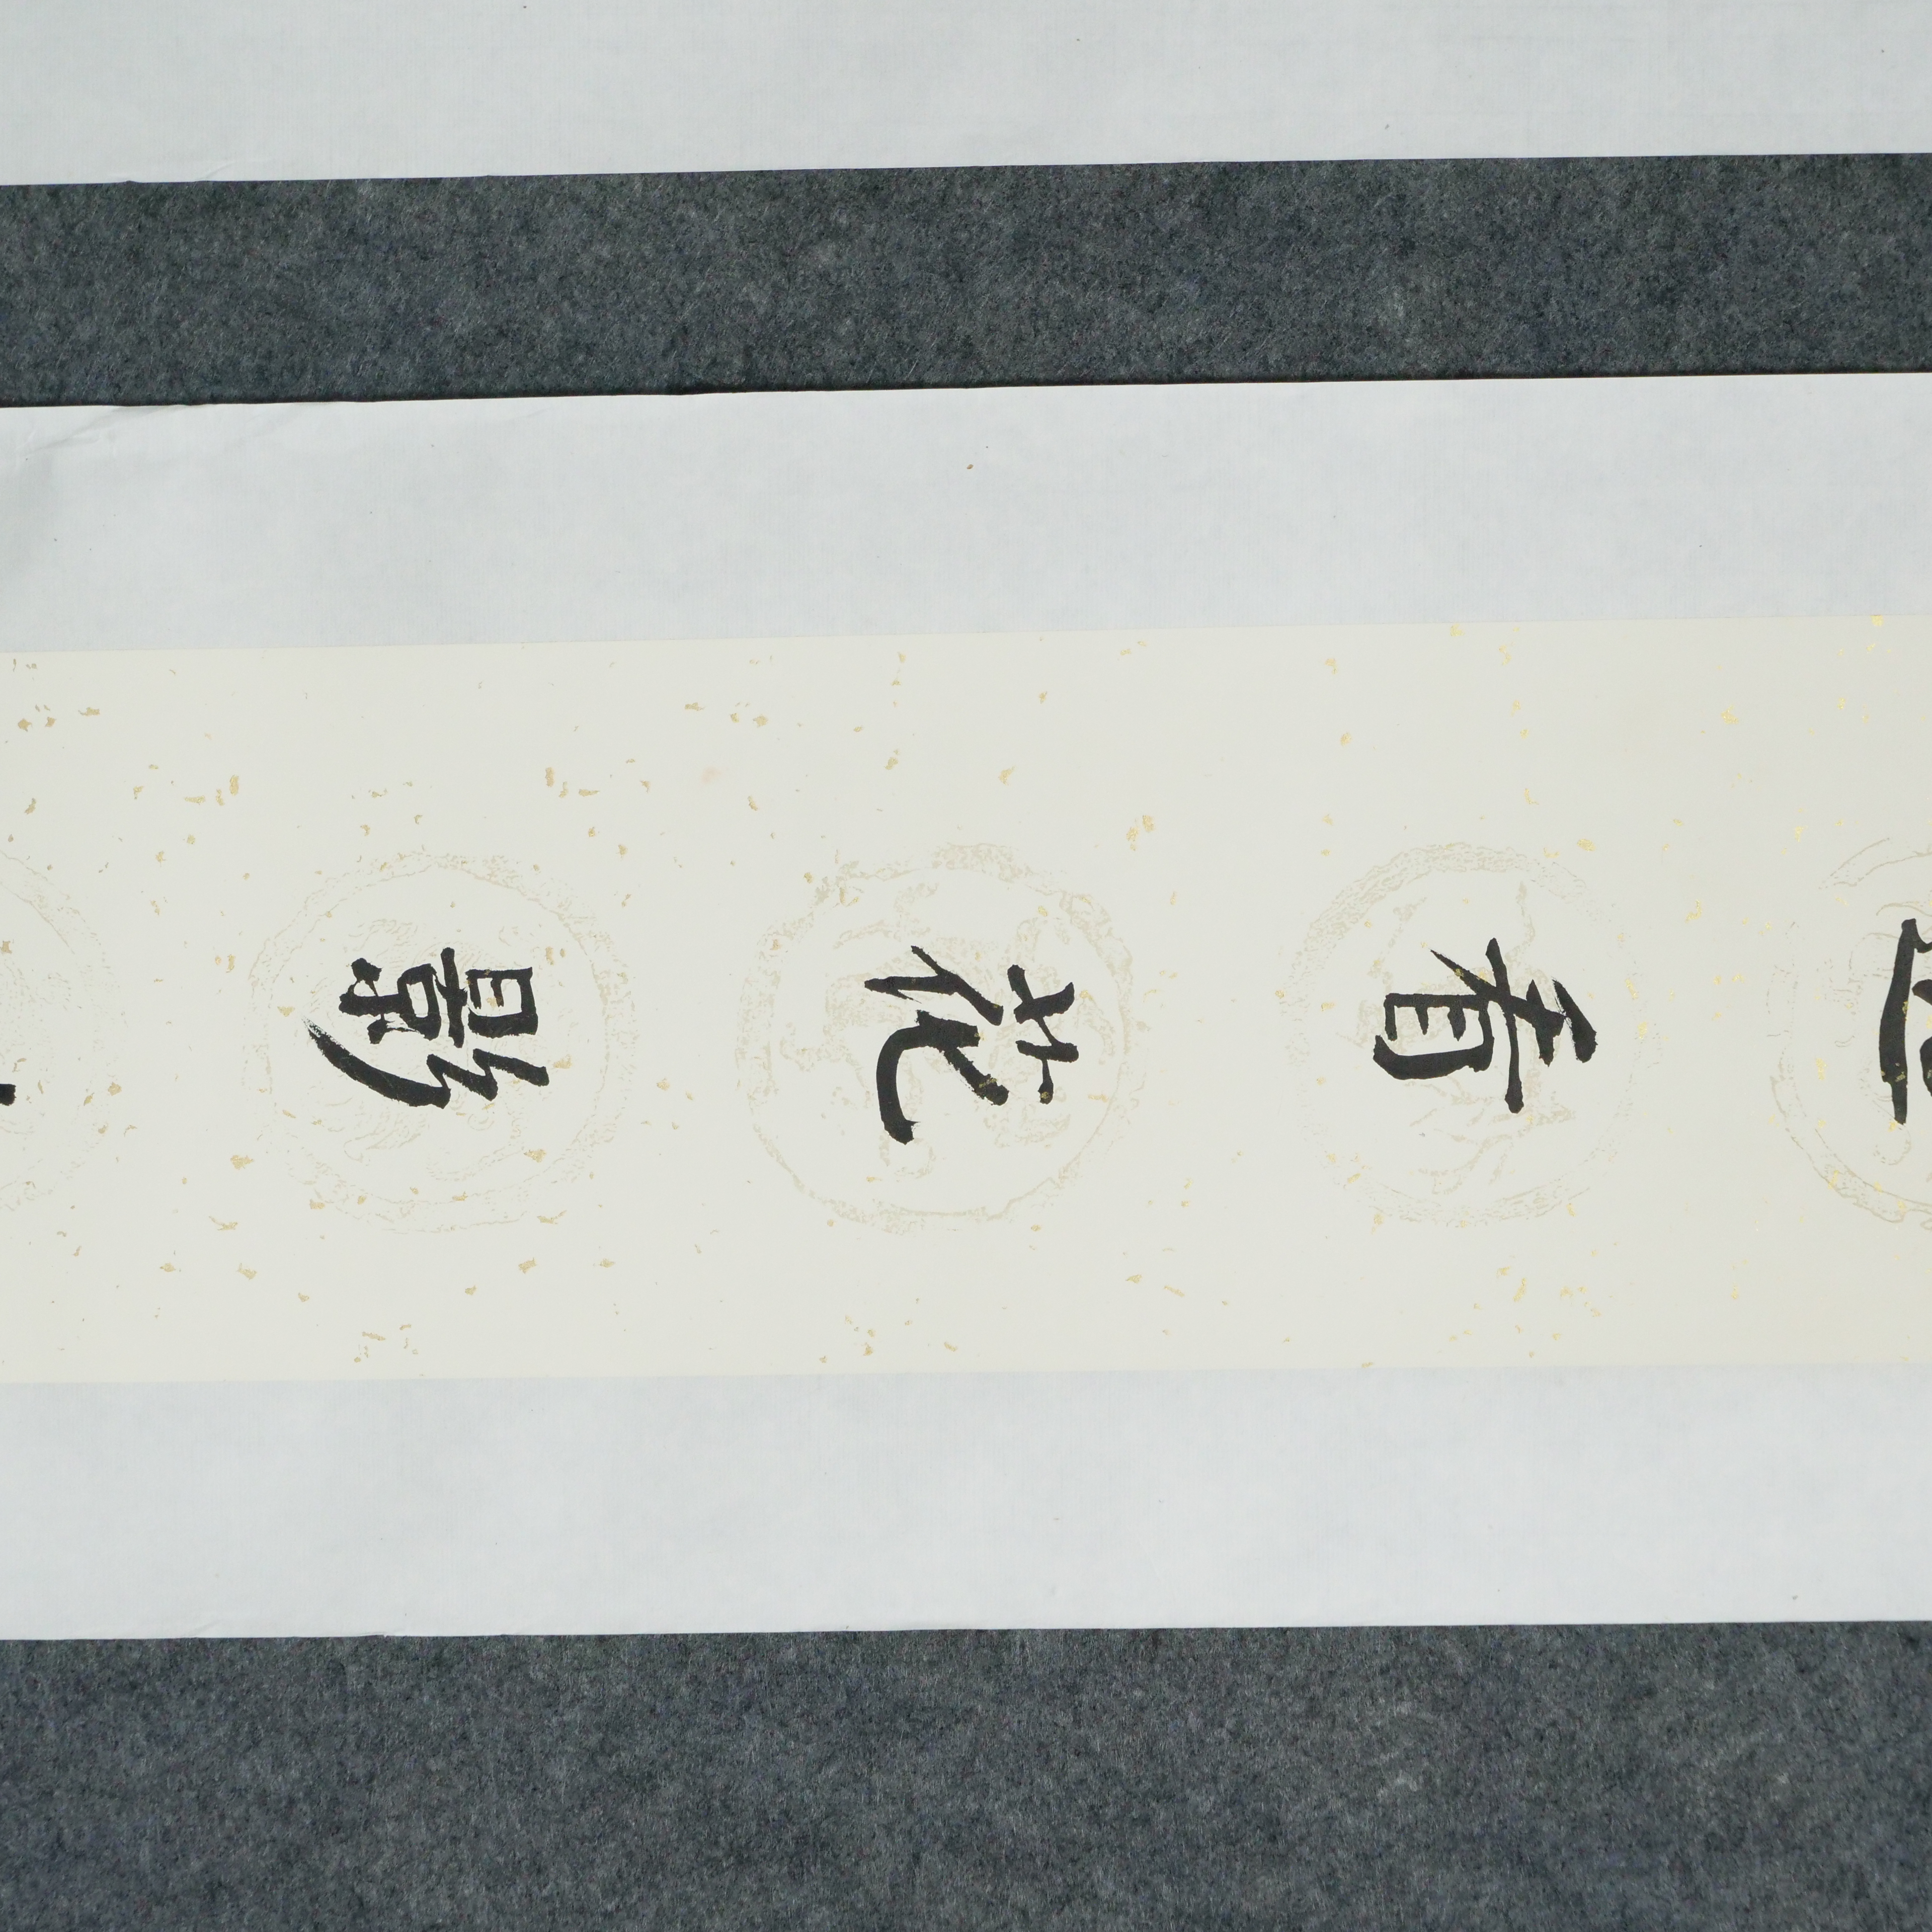 看花影